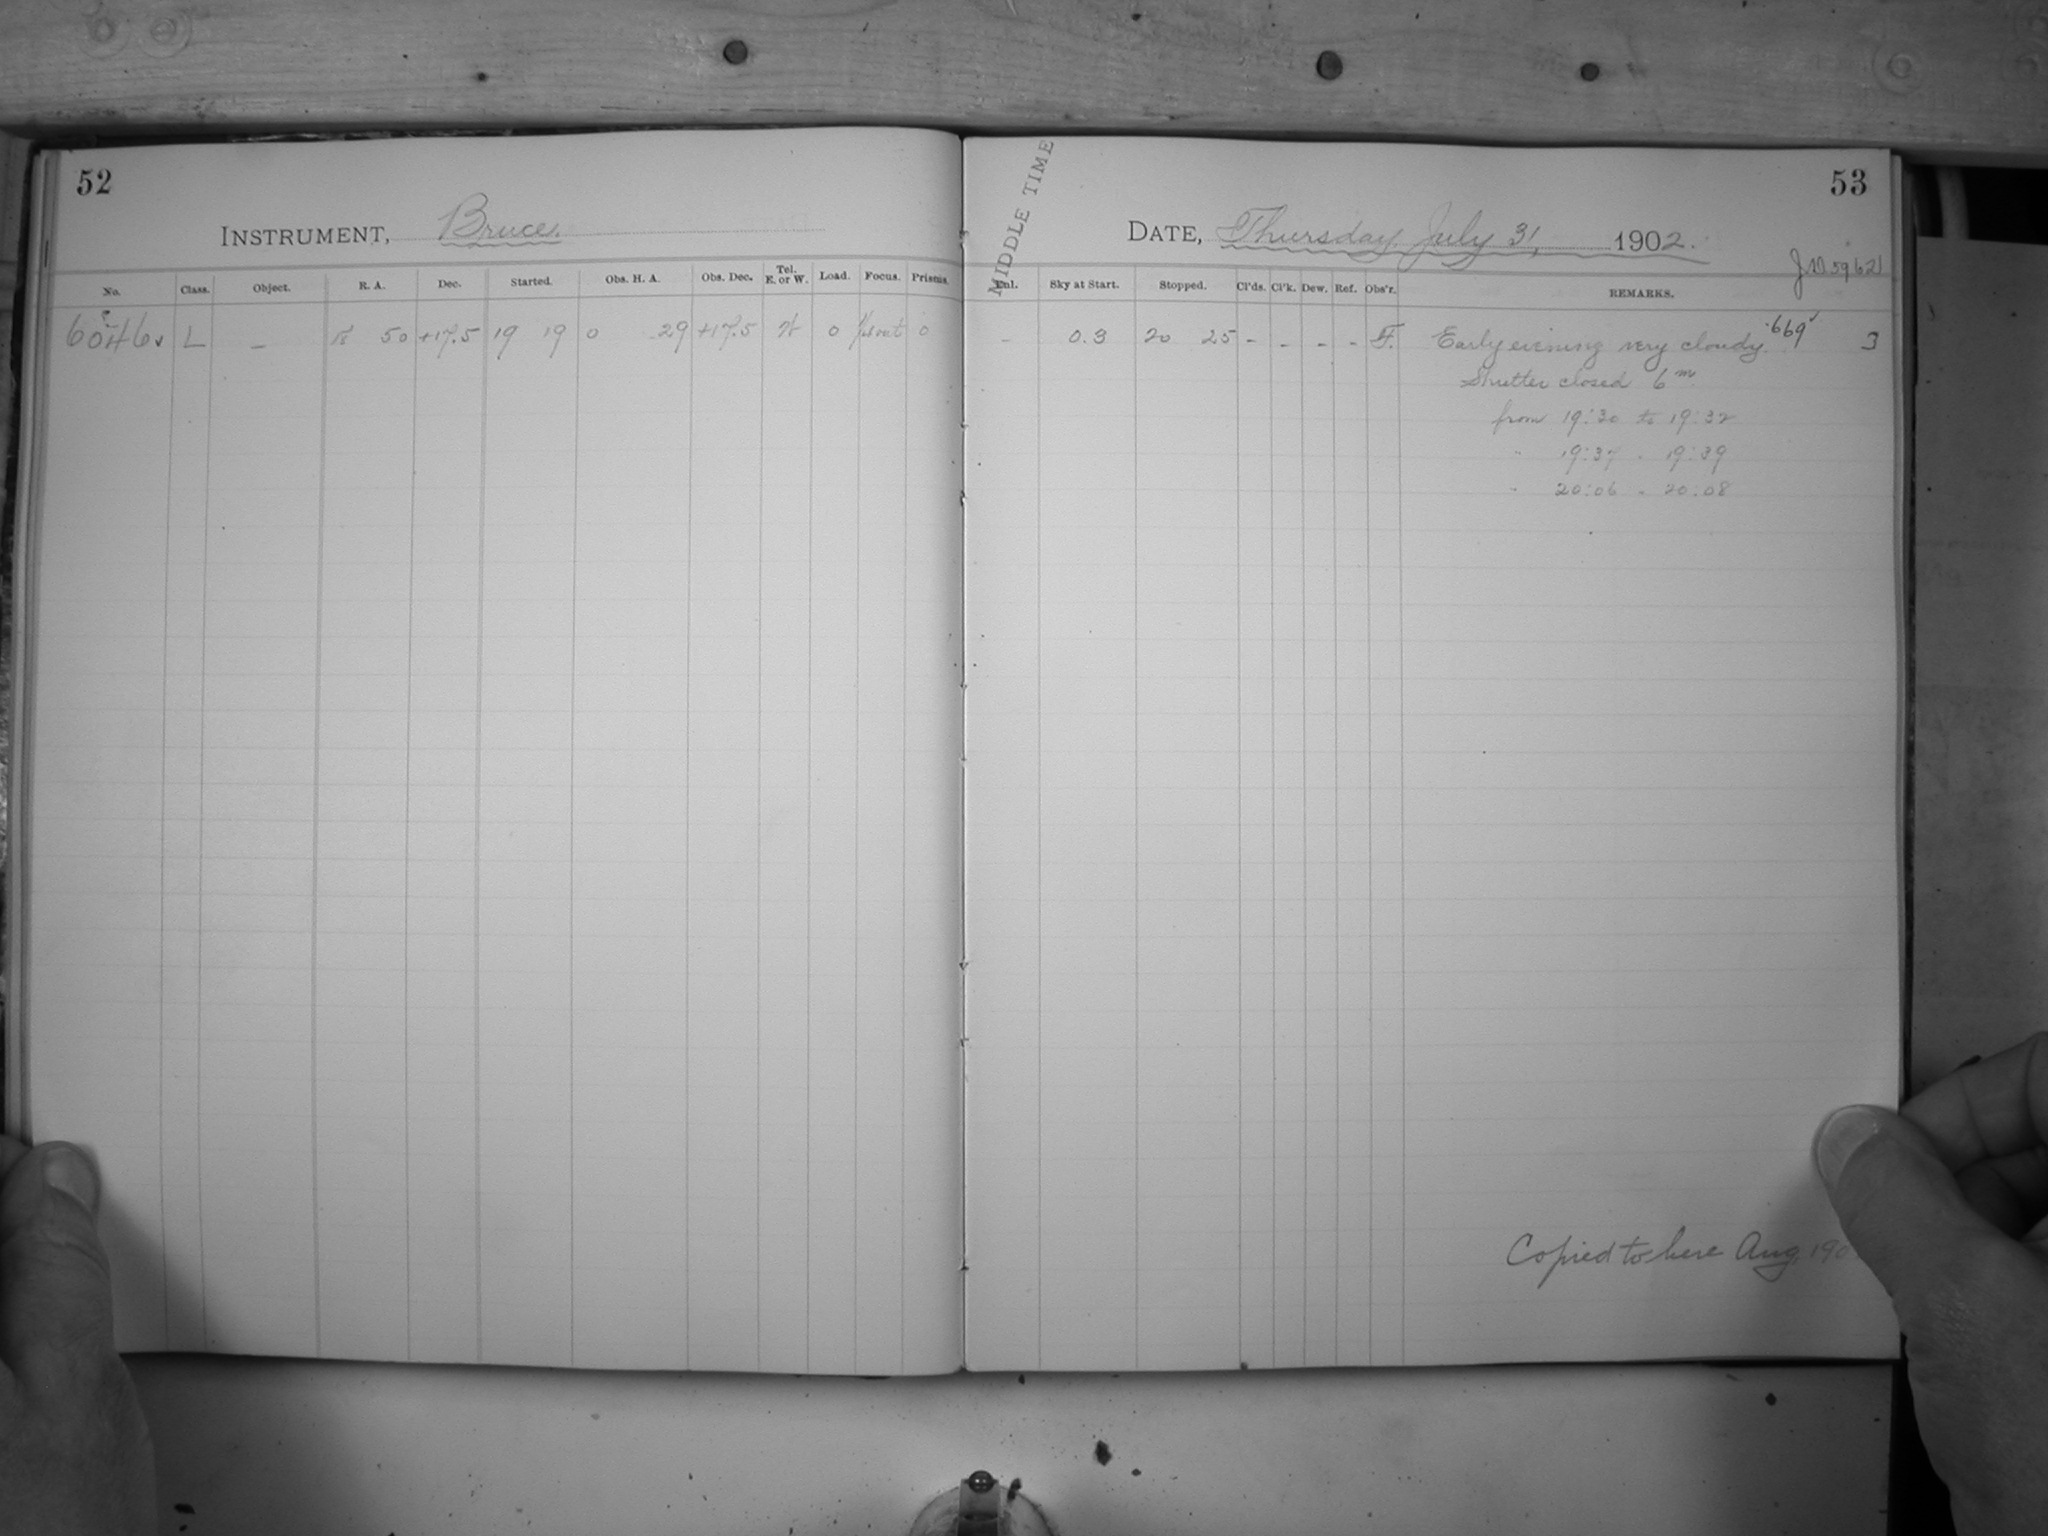 52
INSTRUMENT, Bruce.
No. Class. Object. R. A. Dec. Started. Obs. H. A. Obs. Dec. Tel. E. or W. Load. Focus. Prisms.
6046 L – 18 50 +17.5 19 19 0 29 +17.5 W 0 out 0
53
MIDDLE TIME
DATE, Thursday, July 31, 1902.
JD 5962
Enl. Sky at Start. Stopped. Cl'ds. Cl'k. Dew. Ref. Obs'r. REMARKS.
– 0.3 20 25 – – – – F. Early evening very cloudy. .669 3
Shutter closed 6m
from 19:30 to 19:32
" 19:37 " 19:39
" 20:06 " 20:08
Copied to here Aug. 190